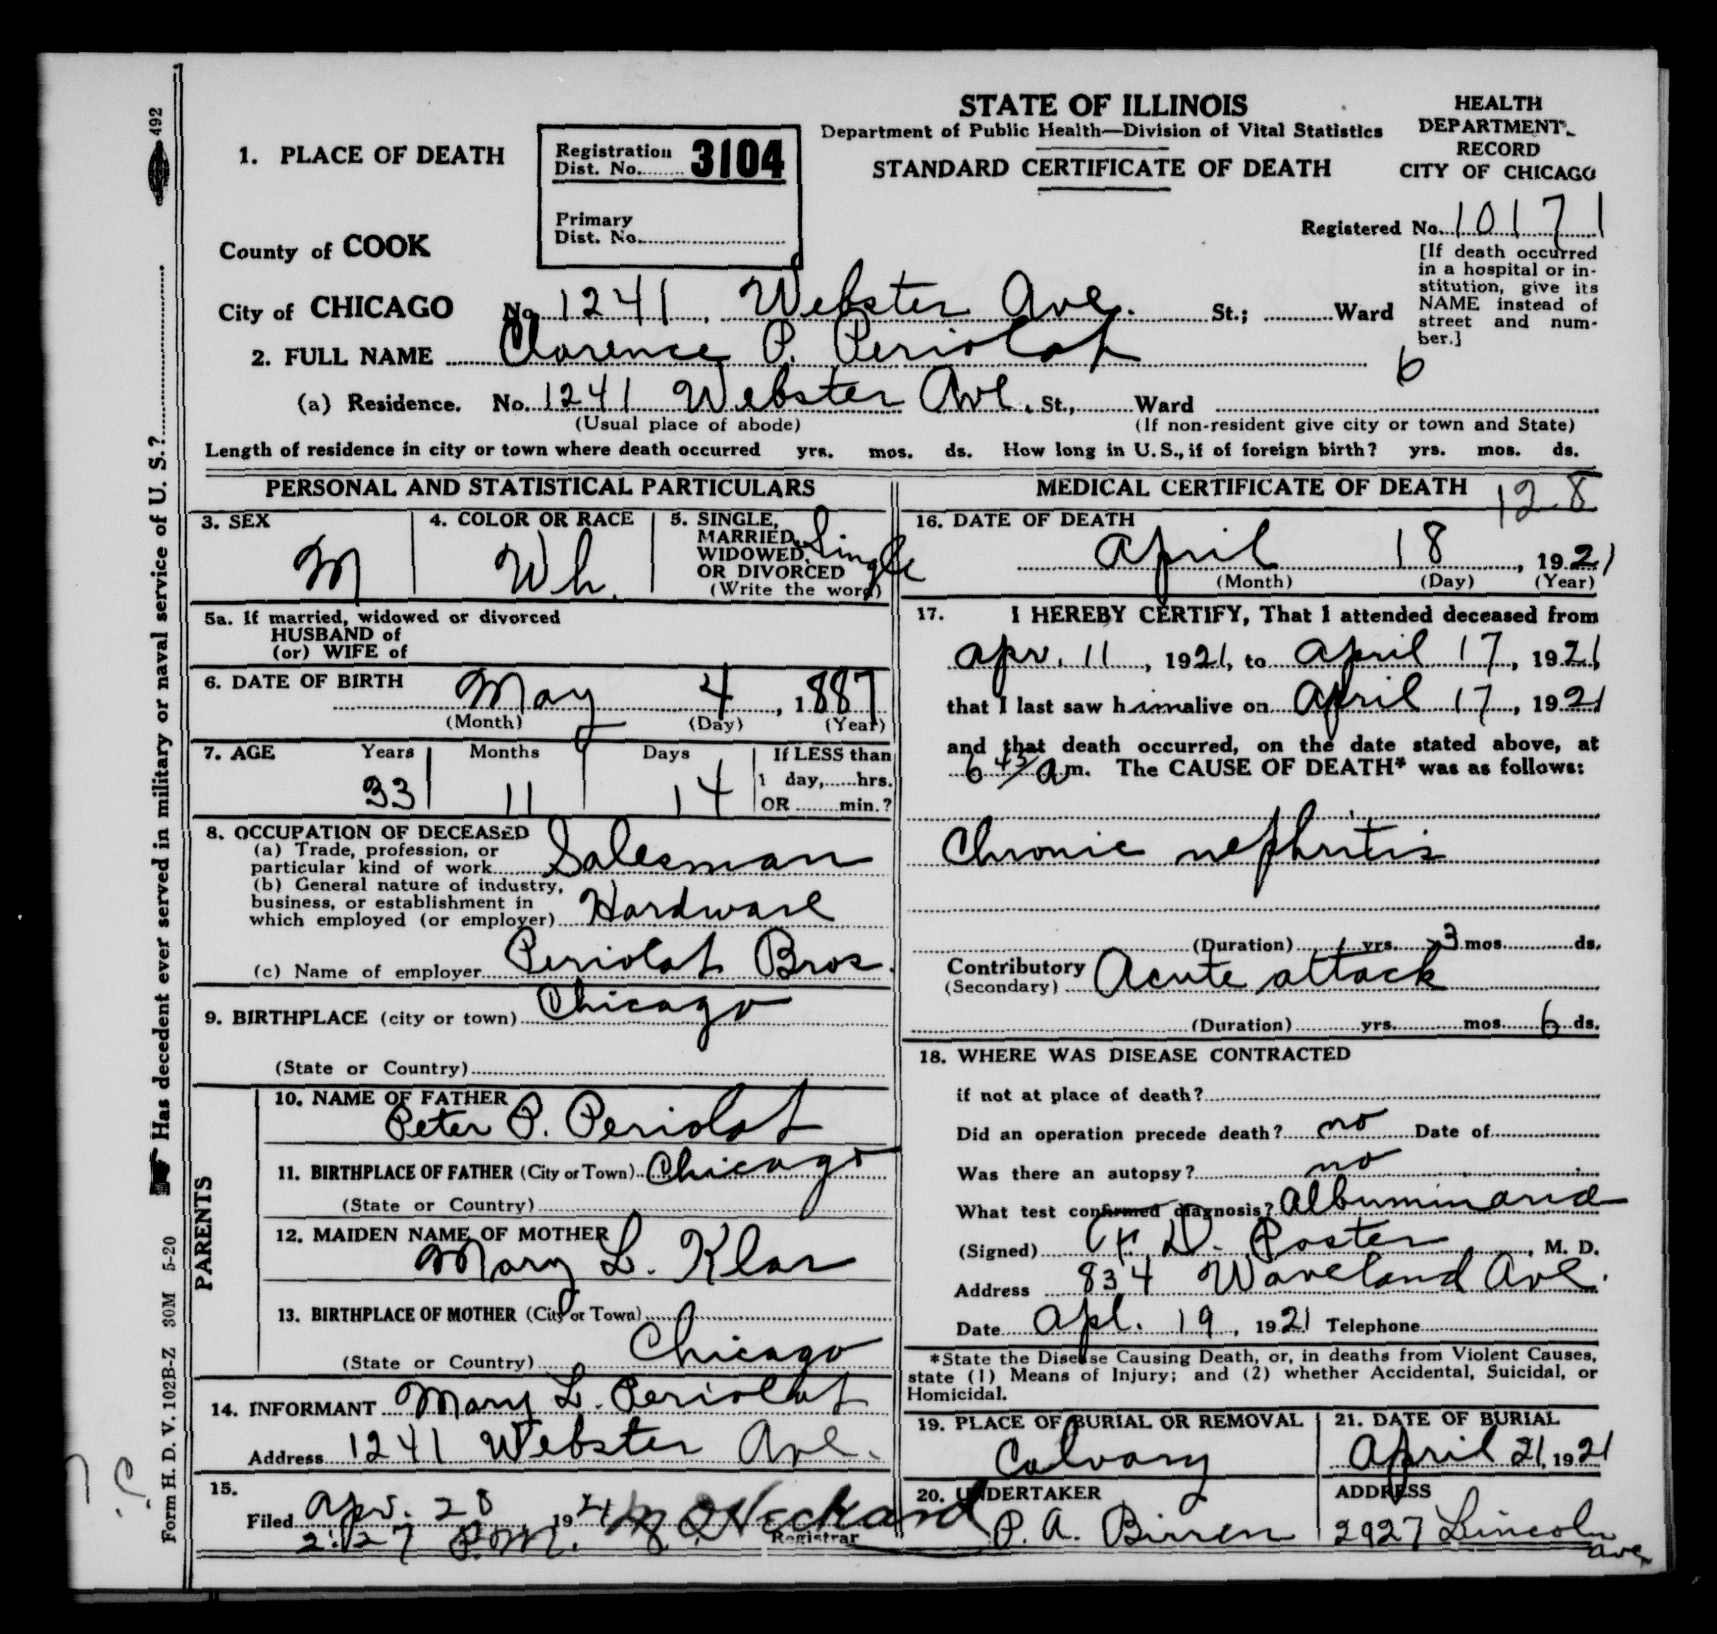 STATE OF ILLINOIS
Department of Public Health—Division of Vital Statistics
STANDARD CERTIFICATE OF DEATH
HEALTH
DEPARTMENT
RECORD
CITY OF CHICAGO
1. PLACE OF DEATH
Registration
Dist. No. 3104
Primary
Dist. No.
Registered No. 10171
[If death occurred
in a hospital or in-
stitution, give its
NAME instead of
street and num-
ber.]
County of COOK
City of CHICAGO No. 1241 Webster Ave. St.; Ward
2. FULL NAME Clarence P. Periolat
6
(a) Residence. No. 1241 Webster Ave. St., Ward
(Usual place of abode) (If non-resident give city or town and State)
Length of residence in city or town where death occurred yrs. mos. ds. How long in U.S., if of foreign birth? yrs. mos. ds.
PERSONAL AND STATISTICAL PARTICULARS
3. SEX M
4. COLOR OR RACE Wh.
5. SINGLE,
MARRIED,
WIDOWED,
OR DIVORCED
(Write the word) Single
5a. If married, widowed or divorced
HUSBAND of
(or) WIFE of
6. DATE OF BIRTH May 4, 1887
(Month) (Day) (Year)
7. AGE Years Months Days If LESS than
33 11 14 1 day, hrs.
OR min.?
8. OCCUPATION OF DECEASED
(a) Trade, profession, or
particular kind of work Salesman
(b) General nature of industry,
business, or establishment in
which employed (or employer) Hardware
(c) Name of employer Periolat Bros.
9. BIRTHPLACE (city or town) Chicago
(State or Country)
PARENTS
10. NAME OF FATHER
Peter P. Periolat
11. BIRTHPLACE OF FATHER (City or Town) Chicago
(State or Country)
12. MAIDEN NAME OF MOTHER
Mary L. Klar
13. BIRTHPLACE OF MOTHER (City or Town)
(State or Country) Chicago
14. INFORMANT Mary L. Periolat
Address 1241 Webster Ave.
15.
Filed Apr. 28 1921
2:27 P.M. Registrar
MEDICAL CERTIFICATE OF DEATH 128
16. DATE OF DEATH
April 18, 1921
(Month) (Day) (Year)
17. I HEREBY CERTIFY, That I attended deceased from
Apr. 11, 1921, to April 17, 1921,
that I last saw him alive on April 17, 1921
and that death occurred, on the date stated above, at
6 45/ a m. The CAUSE OF DEATH* was as follows:
Chronic nephritis
(Duration) 1 yrs. 3 mos. ds.
Contributory Acute attack
(Secondary)
(Duration) yrs. mos. 6 ds.
18. WHERE WAS DISEASE CONTRACTED
if not at place of death?
Did an operation precede death? no Date of
Was there an autopsy? no
What test confirmed diagnosis?
(Signed) M. D.
Address 834 Waveland Ave.
Date Apl. 19, 1921 Telephone
*State the Disease Causing Death, or, in deaths from Violent Causes,
state (1) Means of Injury; and (2) whether Accidental, Suicidal, or
Homicidal.
19. PLACE OF BURIAL OR REMOVAL
Calvary
21. DATE OF BURIAL
April 21, 1921
20. UNDERTAKER
P. A. Birren
ADDRESS
2927 Lincoln
Ave
Has decedent ever served in military or naval service of U. S.?
Form H. D. V. 102B-Z 30M 5-20
492